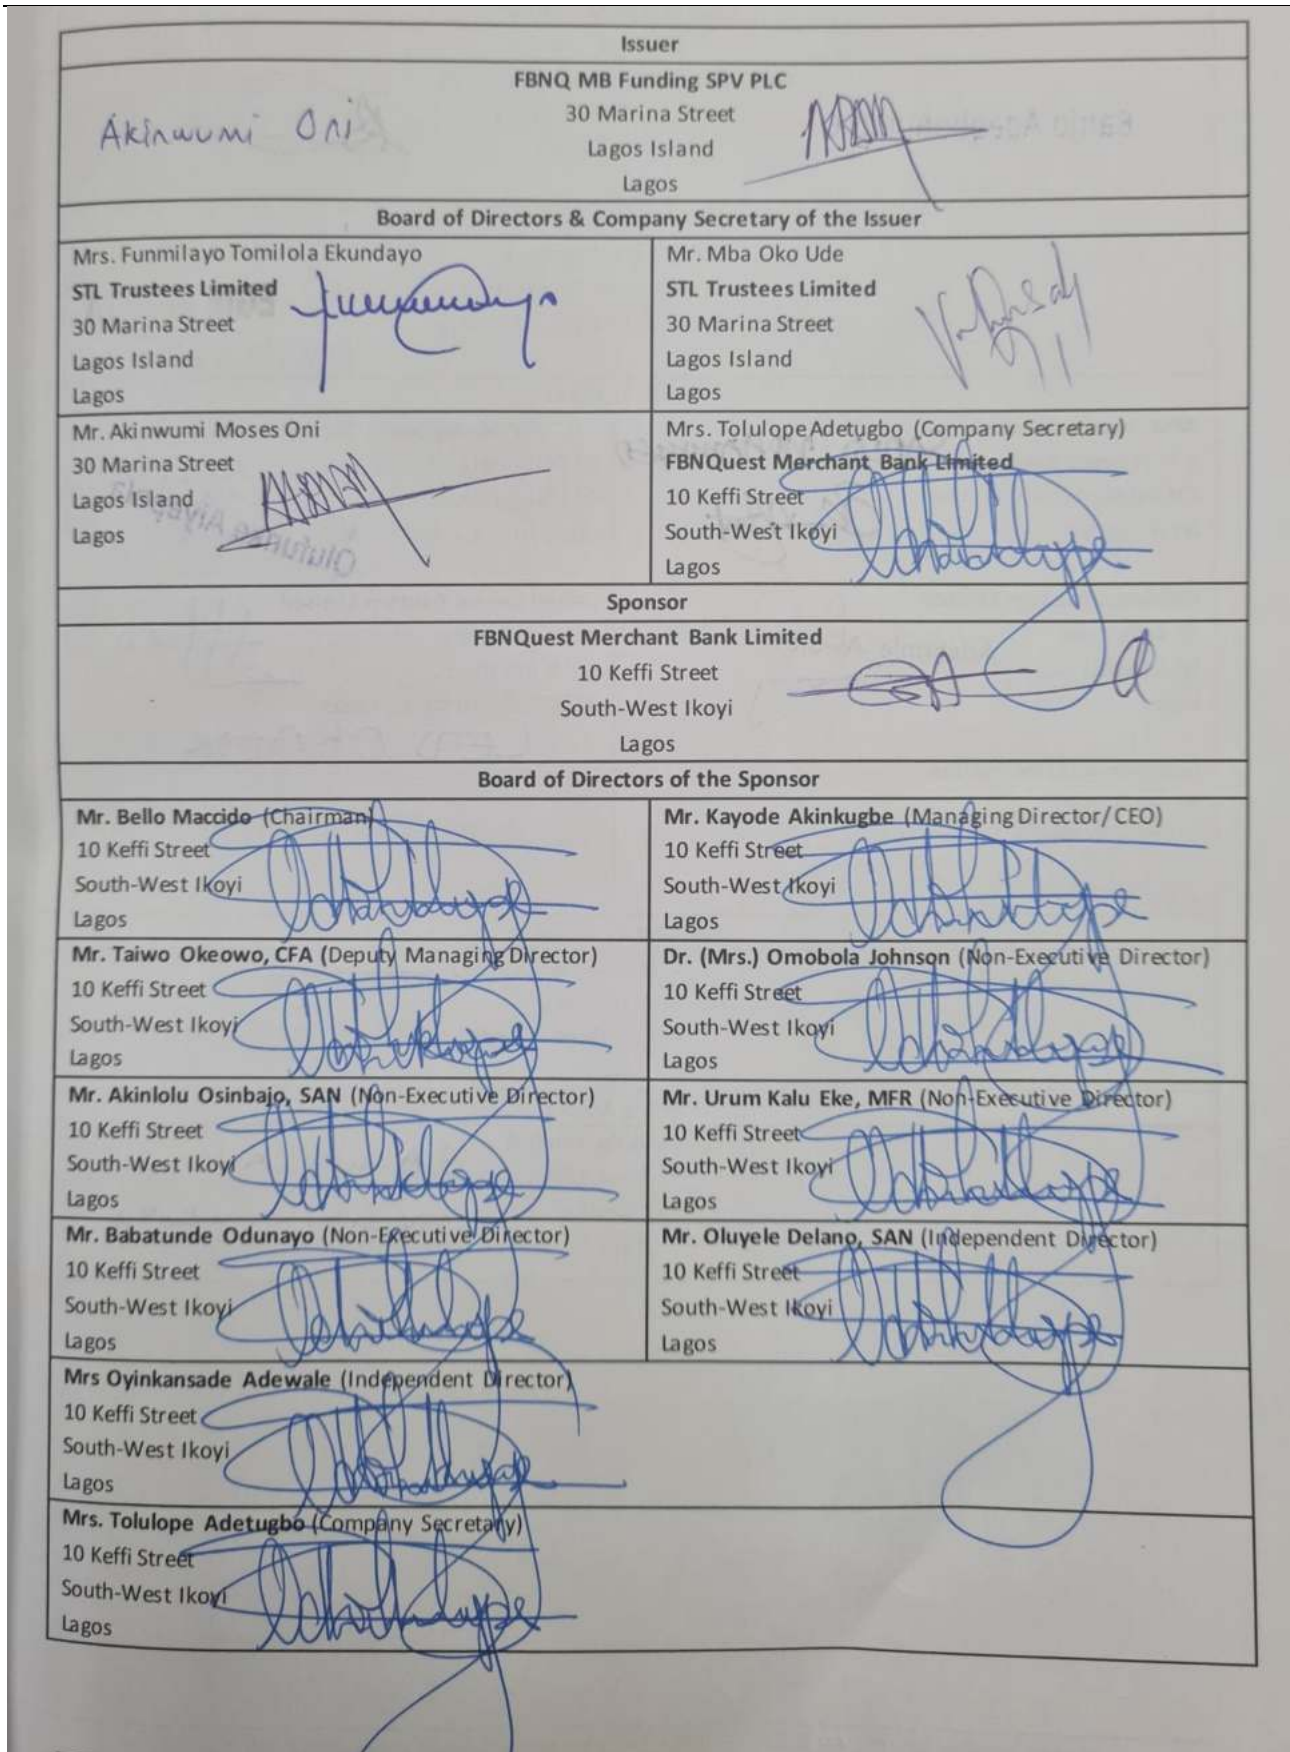 Issuer
FBNQ MB Funding SPV PLC
30 Marina Street
Lagos Island
Lagos
Akinwumi Oni
Board of Directors & Company Secretary of the Issuer
Mrs. Funmilayo Tomilola Ekundayo
STL Trustees Limited
30 Marina Street
Lagos Island
Lagos
Mr. Mba Oko Ude
STL Trustees Limited
30 Marina Street
Lagos Island
Lagos
Mr. Akinwumi Moses Oni
30 Marina Street
Lagos Island
Lagos
Mrs. Tolulope Adetugbo (Company Secretary)
FBNQuest Merchant Bank Limited
10 Keffi Street
South-West Ikoyi
Lagos
Sponsor
FBNQuest Merchant Bank Limited
10 Keffi Street
South-West Ikoyi
Lagos
Board of Directors of the Sponsor
Mr. Bello Maccido (Chairman)
10 Keffi Street
South-West Ikoyi
Lagos
Mr. Kayode Akinkugbe (Managing Director/CEO)
10 Keffi Street
South-West Ikoyi
Lagos
Mr. Taiwo Okeowo, CFA (Deputy Managing Director)
10 Keffi Street
South-West Ikoyi
Lagos
Dr. (Mrs.) Omobola Johnson (Non-Executive Director)
10 Keffi Street
South-West Ikoyi
Lagos
Mr. Akinlolu Osinbajo, SAN (Non-Executive Director)
10 Keffi Street
South-West Ikoyi
Lagos
Mr. Urum Kalu Eke, MFR (Non-Executive Director)
10 Keffi Street
South-West Ikoyi
Lagos
Mr. Babatunde Odunayo (Non-Executive Director)
10 Keffi Street
South-West Ikoyi
Lagos
Mr. Oluyele Delano, SAN (Independent Director)
10 Keffi Street
South-West Ikoyi
Lagos
Mrs Oyinkansade Adewale (Independent Director)
10 Keffi Street
South-West Ikoyi
Lagos
Mrs. Tolulope Adetugbo (Company Secretary)
10 Keffi Street
South-West Ikoyi
Lagos